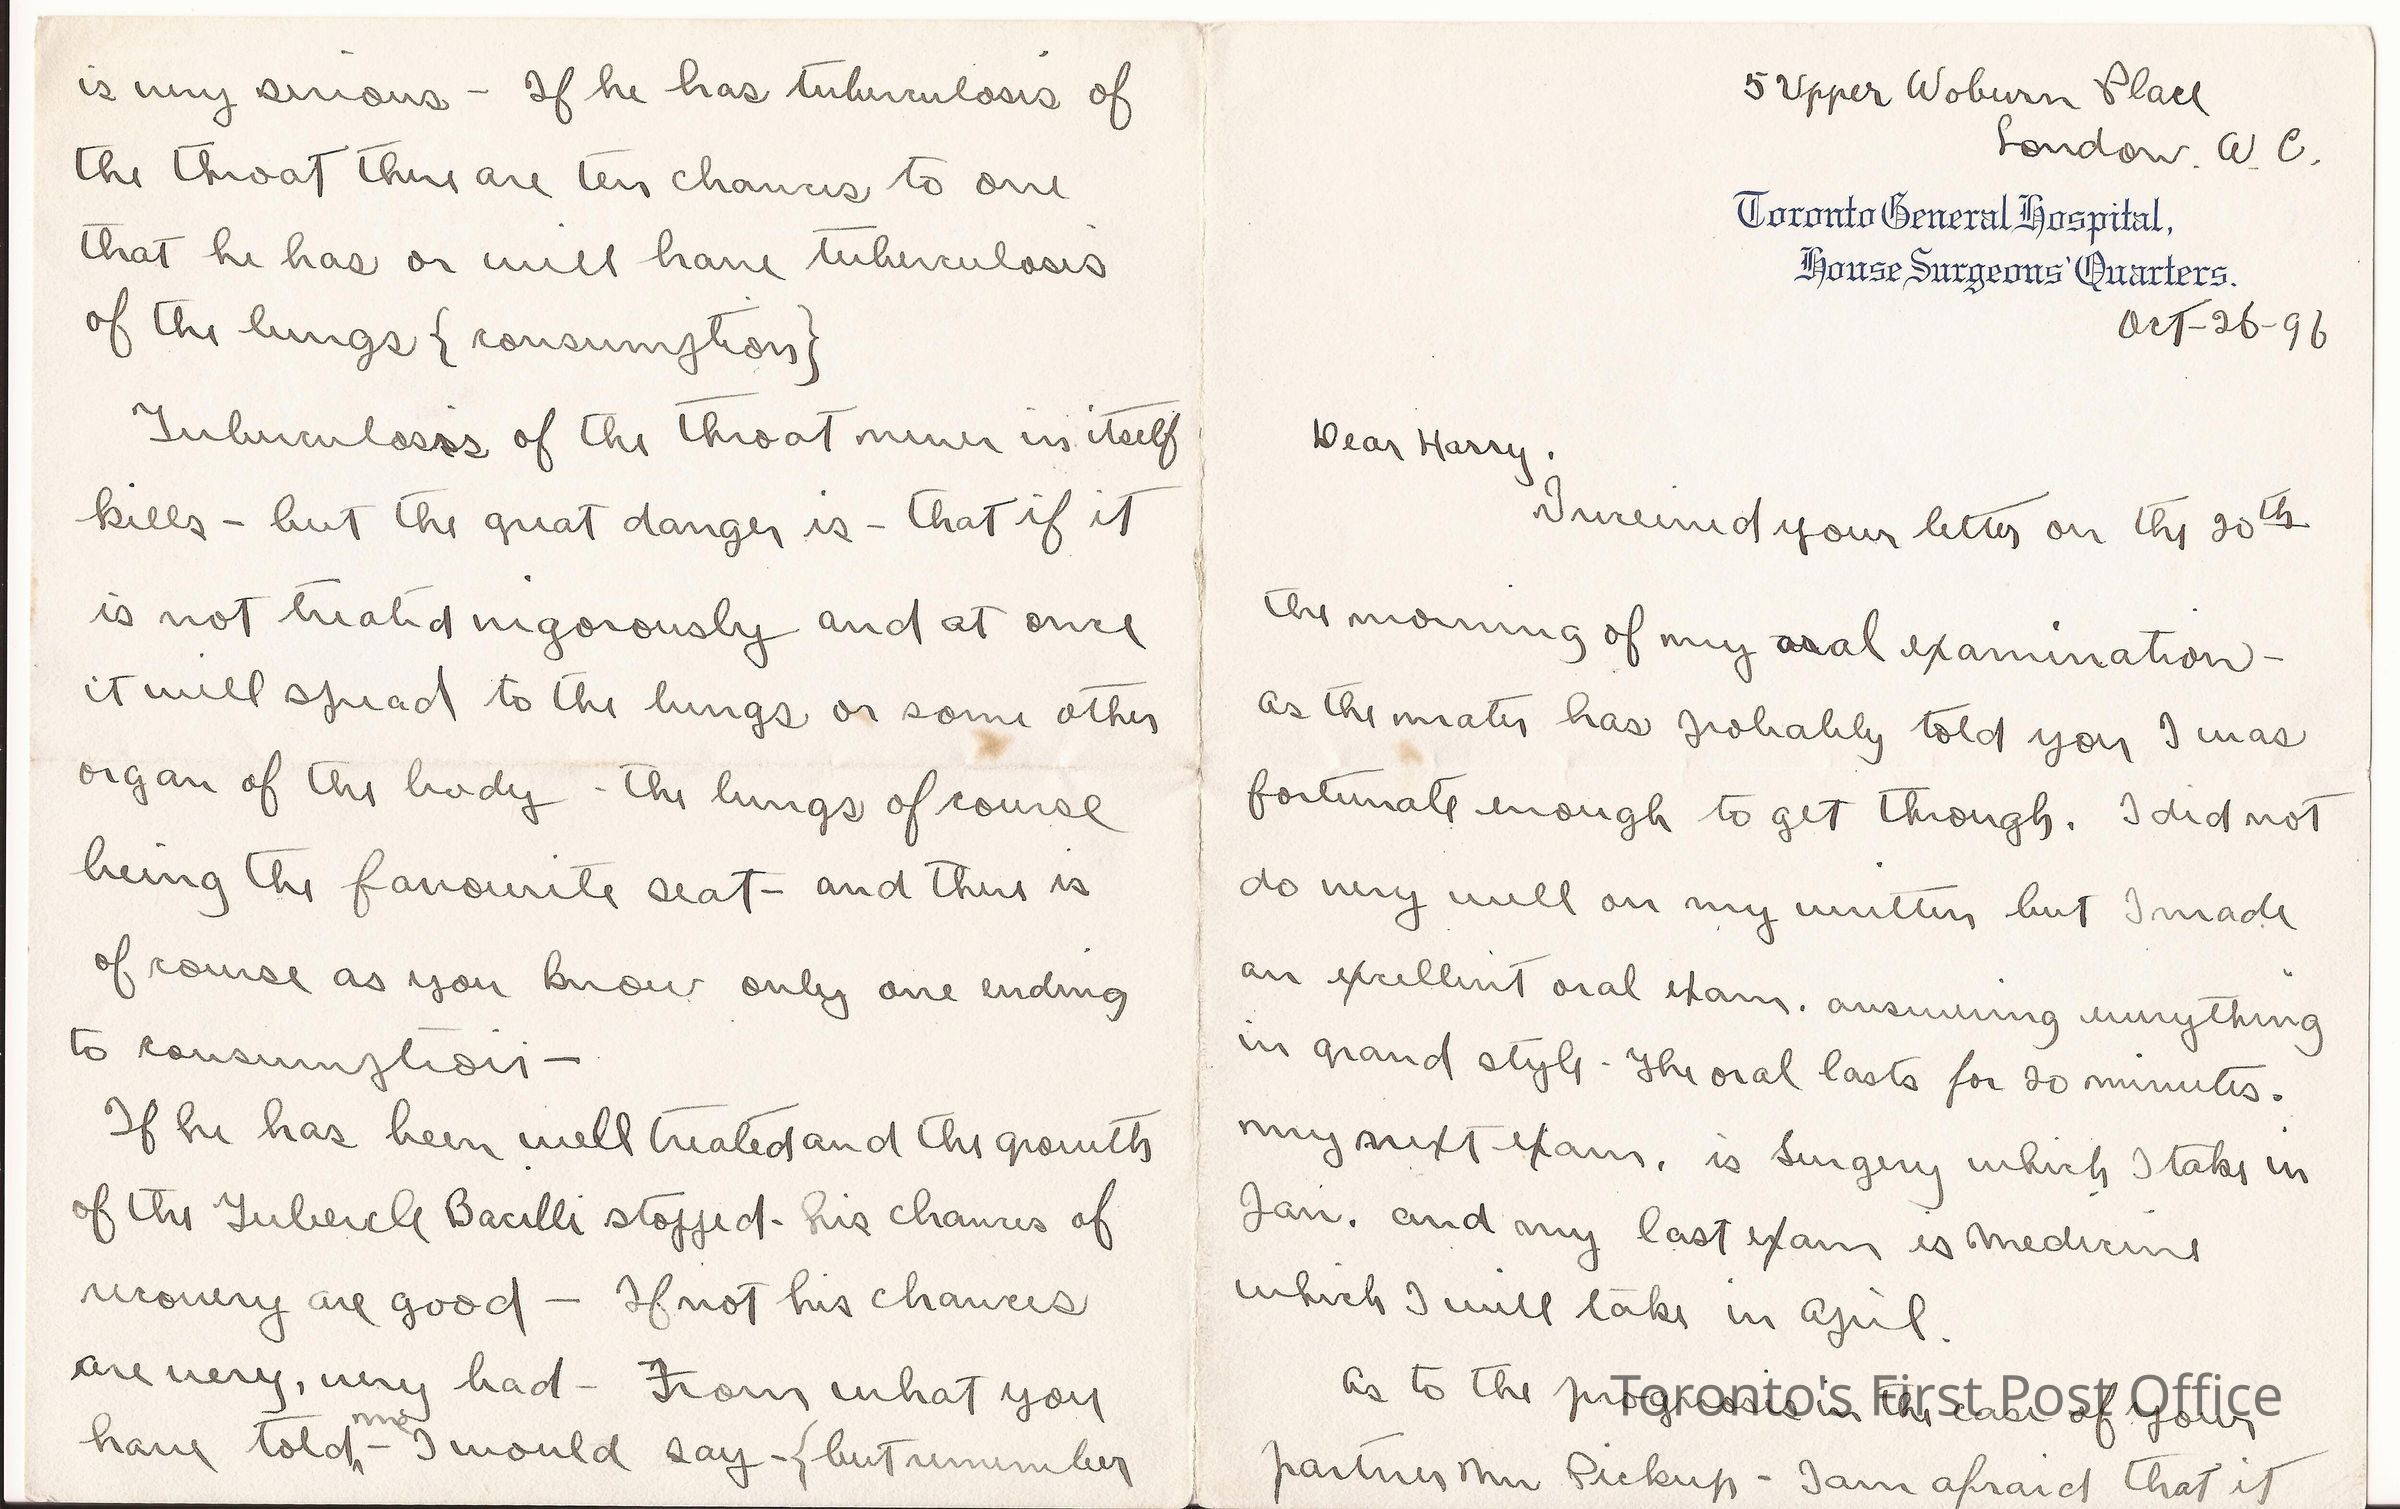 5 Upper Woburn Place
London. W. C.
Toronto General Hospital,
House Surgeons' Quarters.
Oct-26-96
Dear Harry.
I received your letter on the 20th
the morning of my oral examination -
as the mater has probably told you I was
fortunate enough to get through. I did not
do very well on my written but I made
an excellent oral exam. answering everything
in grand style - The oral lasts for 20 minutes.
my next exam. is Surgery which I take in
Jan. and my last exam is Medicine
which I will take in April.
As to the prognosis in the case of your
partner Mr Pickup - I am afraid that it
is very serious - If he has tuberculosis of
the throat there are ten chances to one
that he has or will have tuberculosis
of the lungs {consumption}
Tuberculosis of the throat never in itself
kills - but the great danger is - that if it
is not treated vigorously and at once
it will spread to the lungs or some other
organ of the body - the lungs of course
being the favourite seat - and there is
of course as you know only one ending
to consumption -
If he has been well treated and the growth
of the Tubercle Bacilli stopped - his chances of
recovery are good - If not his chances
are very, very bad - From what you
have told me - I would say - {but remember
Toronto's First Post Office